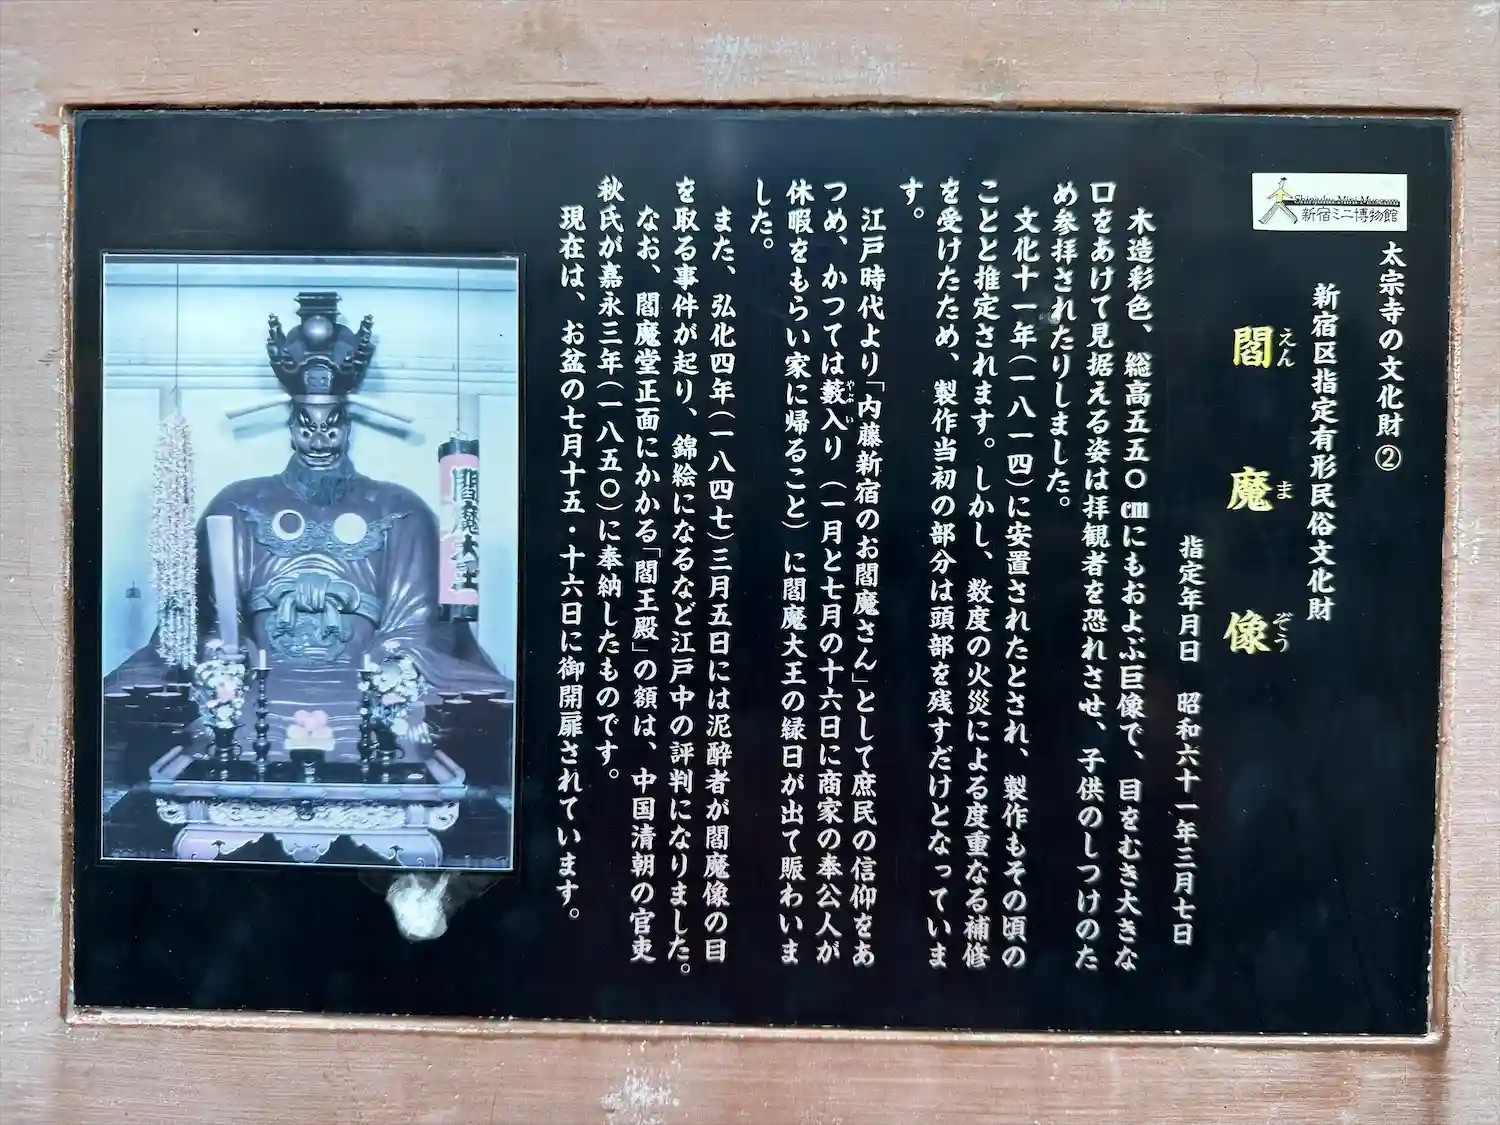 Shinjuku Mini Museum
新宿ミニ博物館
太宗寺の文化財②
新宿区指定有形民俗文化財
閻魔像
えんまぞう
指定年月日　昭和六十一年三月七日
木造彩色、総高五五〇㎝にもおよぶ巨像で、目をむき大きな
口をあけて見据える姿は拝観者を恐れさせ、子供のしつけのた
め参拝されたりしました。
文化十一年(一八一四)に安置されたとされ、製作もその頃の
ことと推定されます。しかし、数度の火災による度重なる補修
を受けたため、製作当初の部分は頭部を残すだけとなっていま
す。
江戸時代より「内藤新宿のお閻魔さん」として庶民の信仰をあ
つめ、かつては藪入り（一月と七月の十六日に商家の奉公人が
やぶい
休暇をもらい家に帰ること）に閻魔大王の縁日が出て賑わいま
した。
また、弘化四年(一八四七)三月五日には泥酔者が閻魔像の目
を取る事件が起り、錦絵になるなど江戸中の評判になりました。
なお、閻魔堂正面にかかる「閻王殿」の額は、中国清朝の官吏
秋氏が嘉永三年(一八五〇)に奉納したものです。
現在は、お盆の七月十五・十六日に御開扉されています。
閻魔大王